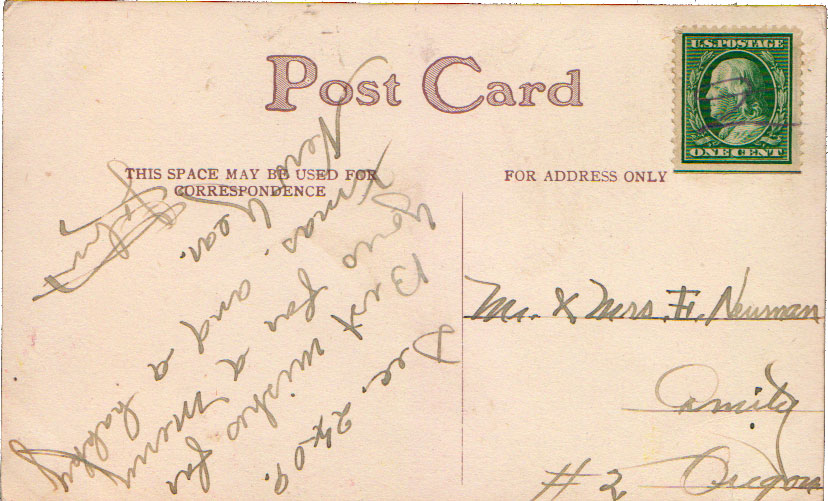 Post Card
THIS SPACE MAY BE USED FOR
CORRESPONDENCE
Dec. 24, 09.
Best wishes for
you for a merry
Xmas. and a happy
New Year.
FOR ADDRESS ONLY
U.S. POSTAGE
ONE CENT
Mr. & Mrs. F. Neuman
Amity
# 2 Oregon